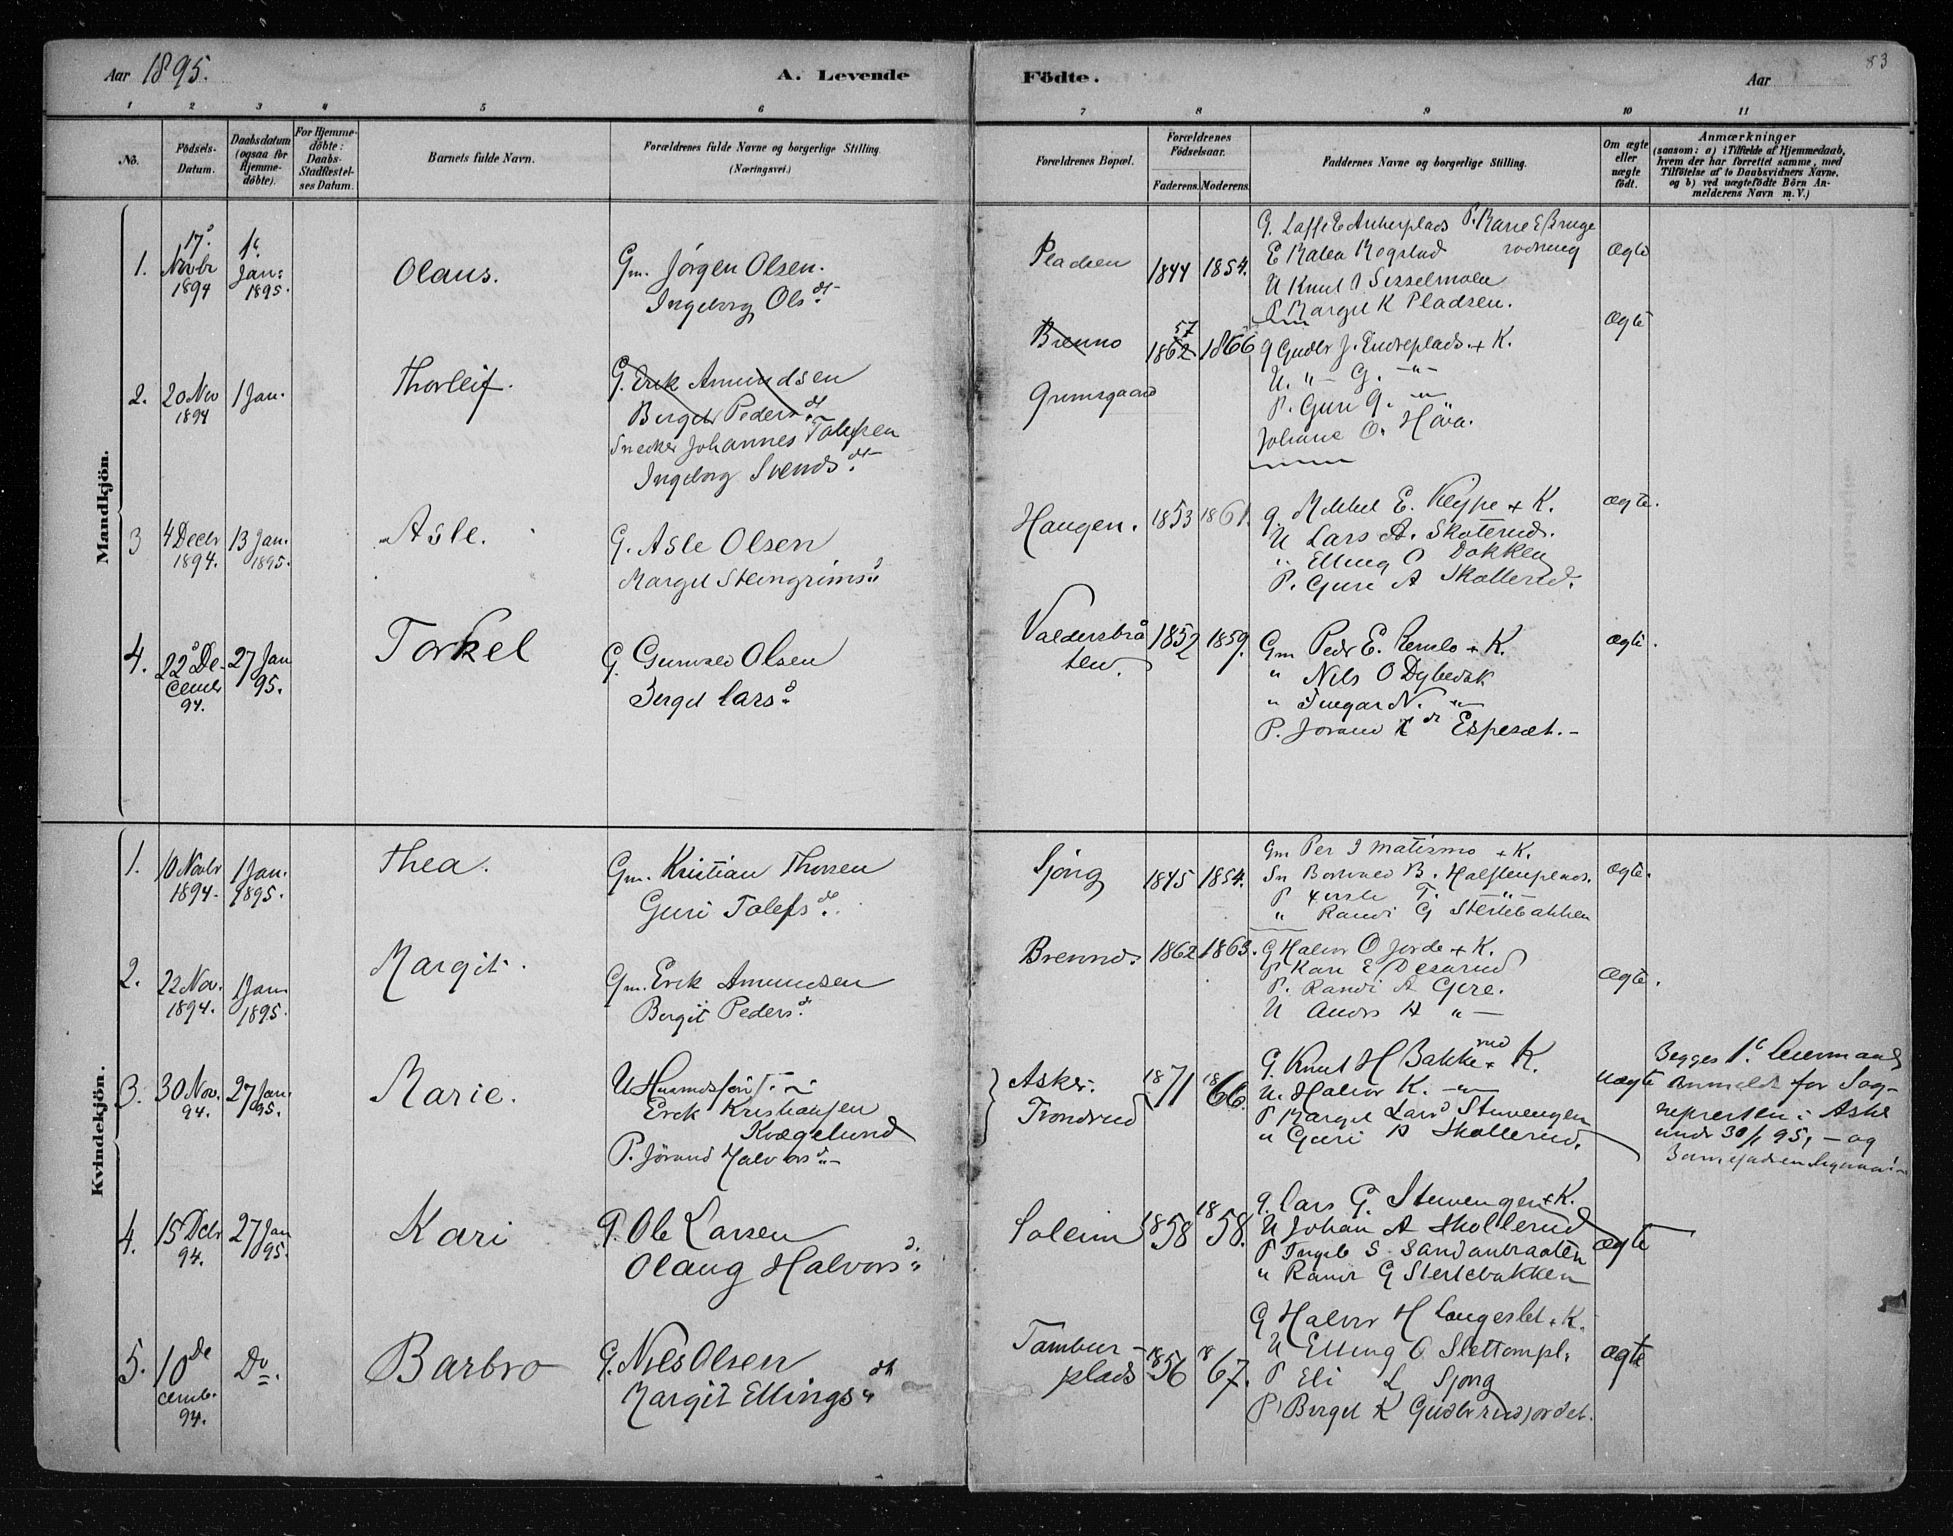 Aar 1895.
A. Levende
Födte.
Aar
83
1 2 3 4 5 6 7 8 9 10 11
No.
Födsels-Datum.
Daabsdatum (ogsaa for Hjemme-döbte).
For Hjemme-döbte: Daabs-Stadfæstel-ses Datum.
Barnets fulde Navn.
Forældrenes fulde Navne og borgerlige Stilling. (Næringsvei.)
Forældrenes Bopæl.
Forældrenes Födselsaar.
Faderens. Moderens.
Faddernes Navne og borgerlige Stilling.
Om ægte eller uægte födt.
Anmærkninger
(saasom: a) i Tilfælde af Hjemmedaab,
hvem der har forrettet samme, med
Tilföielse af to Daabsvidners Navne,
og b) ved uægtefödte Börn An-
melderens Navn m. V.)
Mandkjön.
1. 17 Novbr 1894 1 Jan: 1895. Olaus.
Gm. Jørgen Olsen.
Ingeborg Ols dt
Pladsen 1844 1854.
E Kalea Rogstad
U Knut Sisselmoen
P Margit K Pladsen.
Ægte
2. 20 Nov 1894 1 Jan. Thorleif.
G. Erik Amundsen
Bergit Peders dt
Snecker Johannes Tolefsen
Ingeborg Svends dt
Brenno
Grimsgaard
57
1862 1866
G Gudbr J. Endreplads + K.
U. " G. "
P. Guri G. "
Johane O. Hòva.
Ægte
3 4 Decbr 1894. 13 Jan. 1895. Asle.
G. Asle Olsen
Margit Steingrims d
Haugen. 1853 1861.
G. Mikkel E. + K.
U Lars A. Skoterud.
" Elling O Dokken
P. Guri A Skollerud.
Ægte.
4. 22 December 94. 27 Jan 95. Torkel
G. Gunvald Olsen
Bergit Lars d
Valdersbråten. 1852 1859.
Gm Peder E. + K.
" Nils O
" Ingar N. "
P. Jorand K dt Espeset.
Ægte.
Kvindekjön.
1. 10 Novbr 1894. 1 Jan. 1895. Thea.
Gm. Kristian Thorsen
Guri Tolefs d
Sjòng 1845 1854.
Gm Per I + K.
B. Halstenplads.
" Randi G Stertebakken
Ægte.
2. 22 Nov. 1894. 1 Jan. 1895. Margit.
Gm. Erik Amundsen
Bergit Peders d
Brenno. 1862 1863.
G Halvor O Jorde + K.
P Kari E
P. Randi A Gire.
U Anders A "
Ægte.
3. 30 Nov. 94. 27 Jan 95. Marie.
U
Erik Kristiansen
Kvægelund
P. Jòrand Halvors d
Asker.
Trondrud
1871 1866.
G. Knut H Bakkerud + K.
U. Halvor K. "
P Margit Lars d Stuvengen
" Guri A Skollerud.
Uægte
Begges 1.
anmeldt for Sog-
nepresten i Asker
under 30/1 95, - og
4. 15 Decbr 94. 27 Jan 95. Kari
G. Ole Larsen
Olaug Halvors d
Soleim 1858 1858.
G. Lars G. Stuvengen + K.
U Johan A Skollerud
P Ingeb S. Sandanbraaten
" Randi G Stertebakken
Ægte
5. 10 December 94. Do. Barbro
G. Nils Olsen
Margit Ellings dt
Tamburplads 1856 1867.
G Halvor H Laugeslet + K.
U Elling O Slettempl.
P Eli L Sjong
P Bergit K Gudbrandsjordet.
Ægte